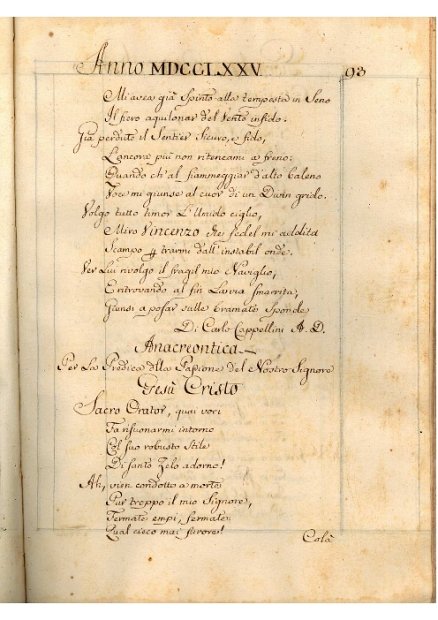 Anno MDCCLXXV. 93
Mi avea già spinto alla tempesta in seno
Il fiero aquilonar del Vento infido.
Già perduto il Sentier sicuro, e fido,
L'ancora più non riteneami a freno:
Quando ch'al fiammeggiar d'alto baleno
Voce mi giunse al cuor di un Divin grido.
Volgo tutto timor L'Umido ciglio,
Miro Vincenzo che fedel mi addita
Scampo p trarmi dall' instabil onde.
Ver Lui rivolgo il fragil mio Naviglio,
E ritrovando al fin La via smarrita,
Giensi a posar sulle bramate sponde
Di Carlo Cappellini A. D.
Anacreontica.
Per La Predica della Passione del Nostro Signore
Gesù Cristo
Sacro Orator, quai voci
Fa risuonarmi intorno
Col suo robusto stile
Di santo Zelo adorno!
Ah, vien condotto a morte
Pur troppo il mio Signore,
Fermate empi, fermate:
Qual cieco mai furore!
Colà